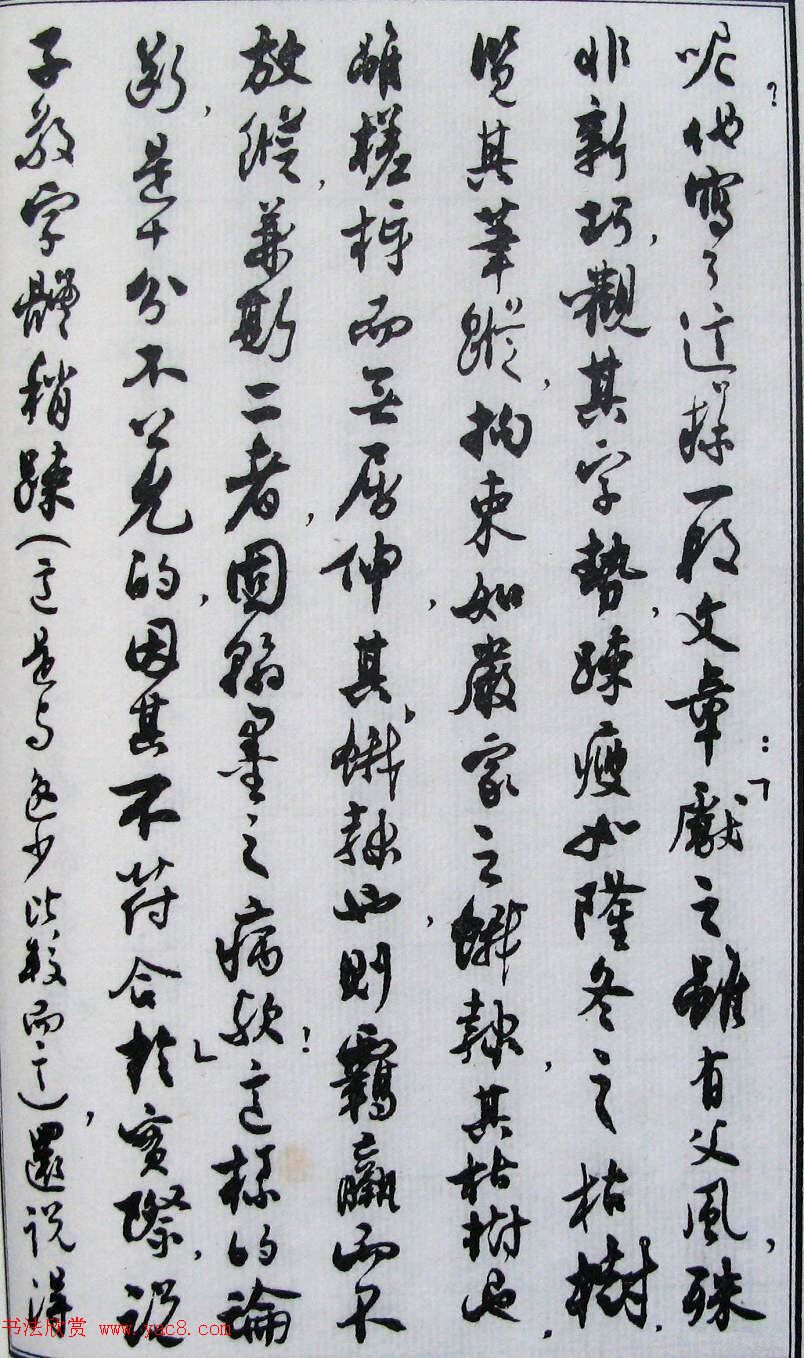 呢？他寫了這樣一段文章：「獻之雖有父風，殊
非新巧，觀其字勢，疎瘦如隆冬之枯樹，
覽其筆蹤，拘束如嚴家之餓隸，其枯樹也，
雖槎枿而無屈伸，其餓隸也，則羈羸而不
放縱，兼斯二者，固翰墨之病歟？」這樣的論
斷，是十分不公允的，因其不符合於實際，說
子敬字體稍疎（這是与逸少比較而言），還說得
书法欣赏 www.yac8.com